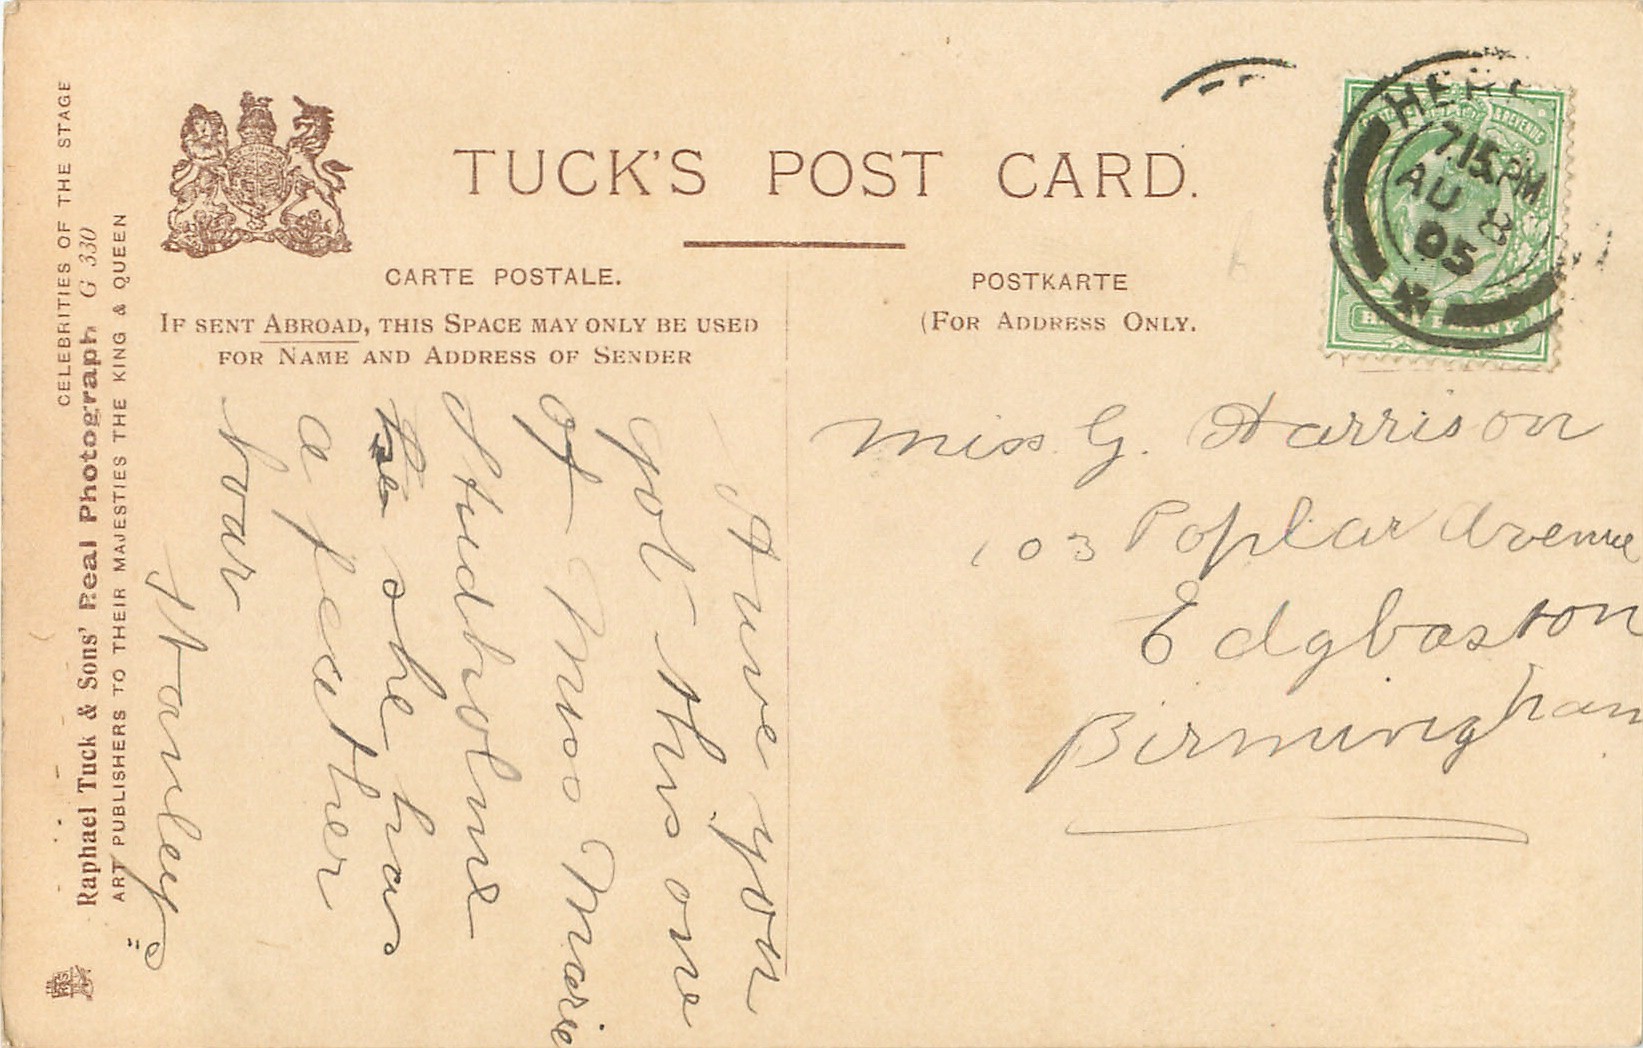 TUCK'S POST CARD.
CARTE POSTALE.
POSTKARTE
IF SENT ABROAD, THIS SPACE MAY ONLY BE USED
FOR NAME AND ADDRESS OF SENDER
(FOR ADDRESS ONLY.
HERE
7.15PM
AU 8
05
& REVENUE
HALF PENNY
CELEBRITIES OF THE STAGE
Raphael Tuck & Sons' Real Photograph G 330
ART PUBLISHERS TO THEIR MAJESTIES THE KING & QUEEN
Have you
got this one
of Miss Marie
Studholme
she has
a feather
boar
Stanley
Miss G. Harrison
103 Poplar Avenue
Edgbaston
Birmingham